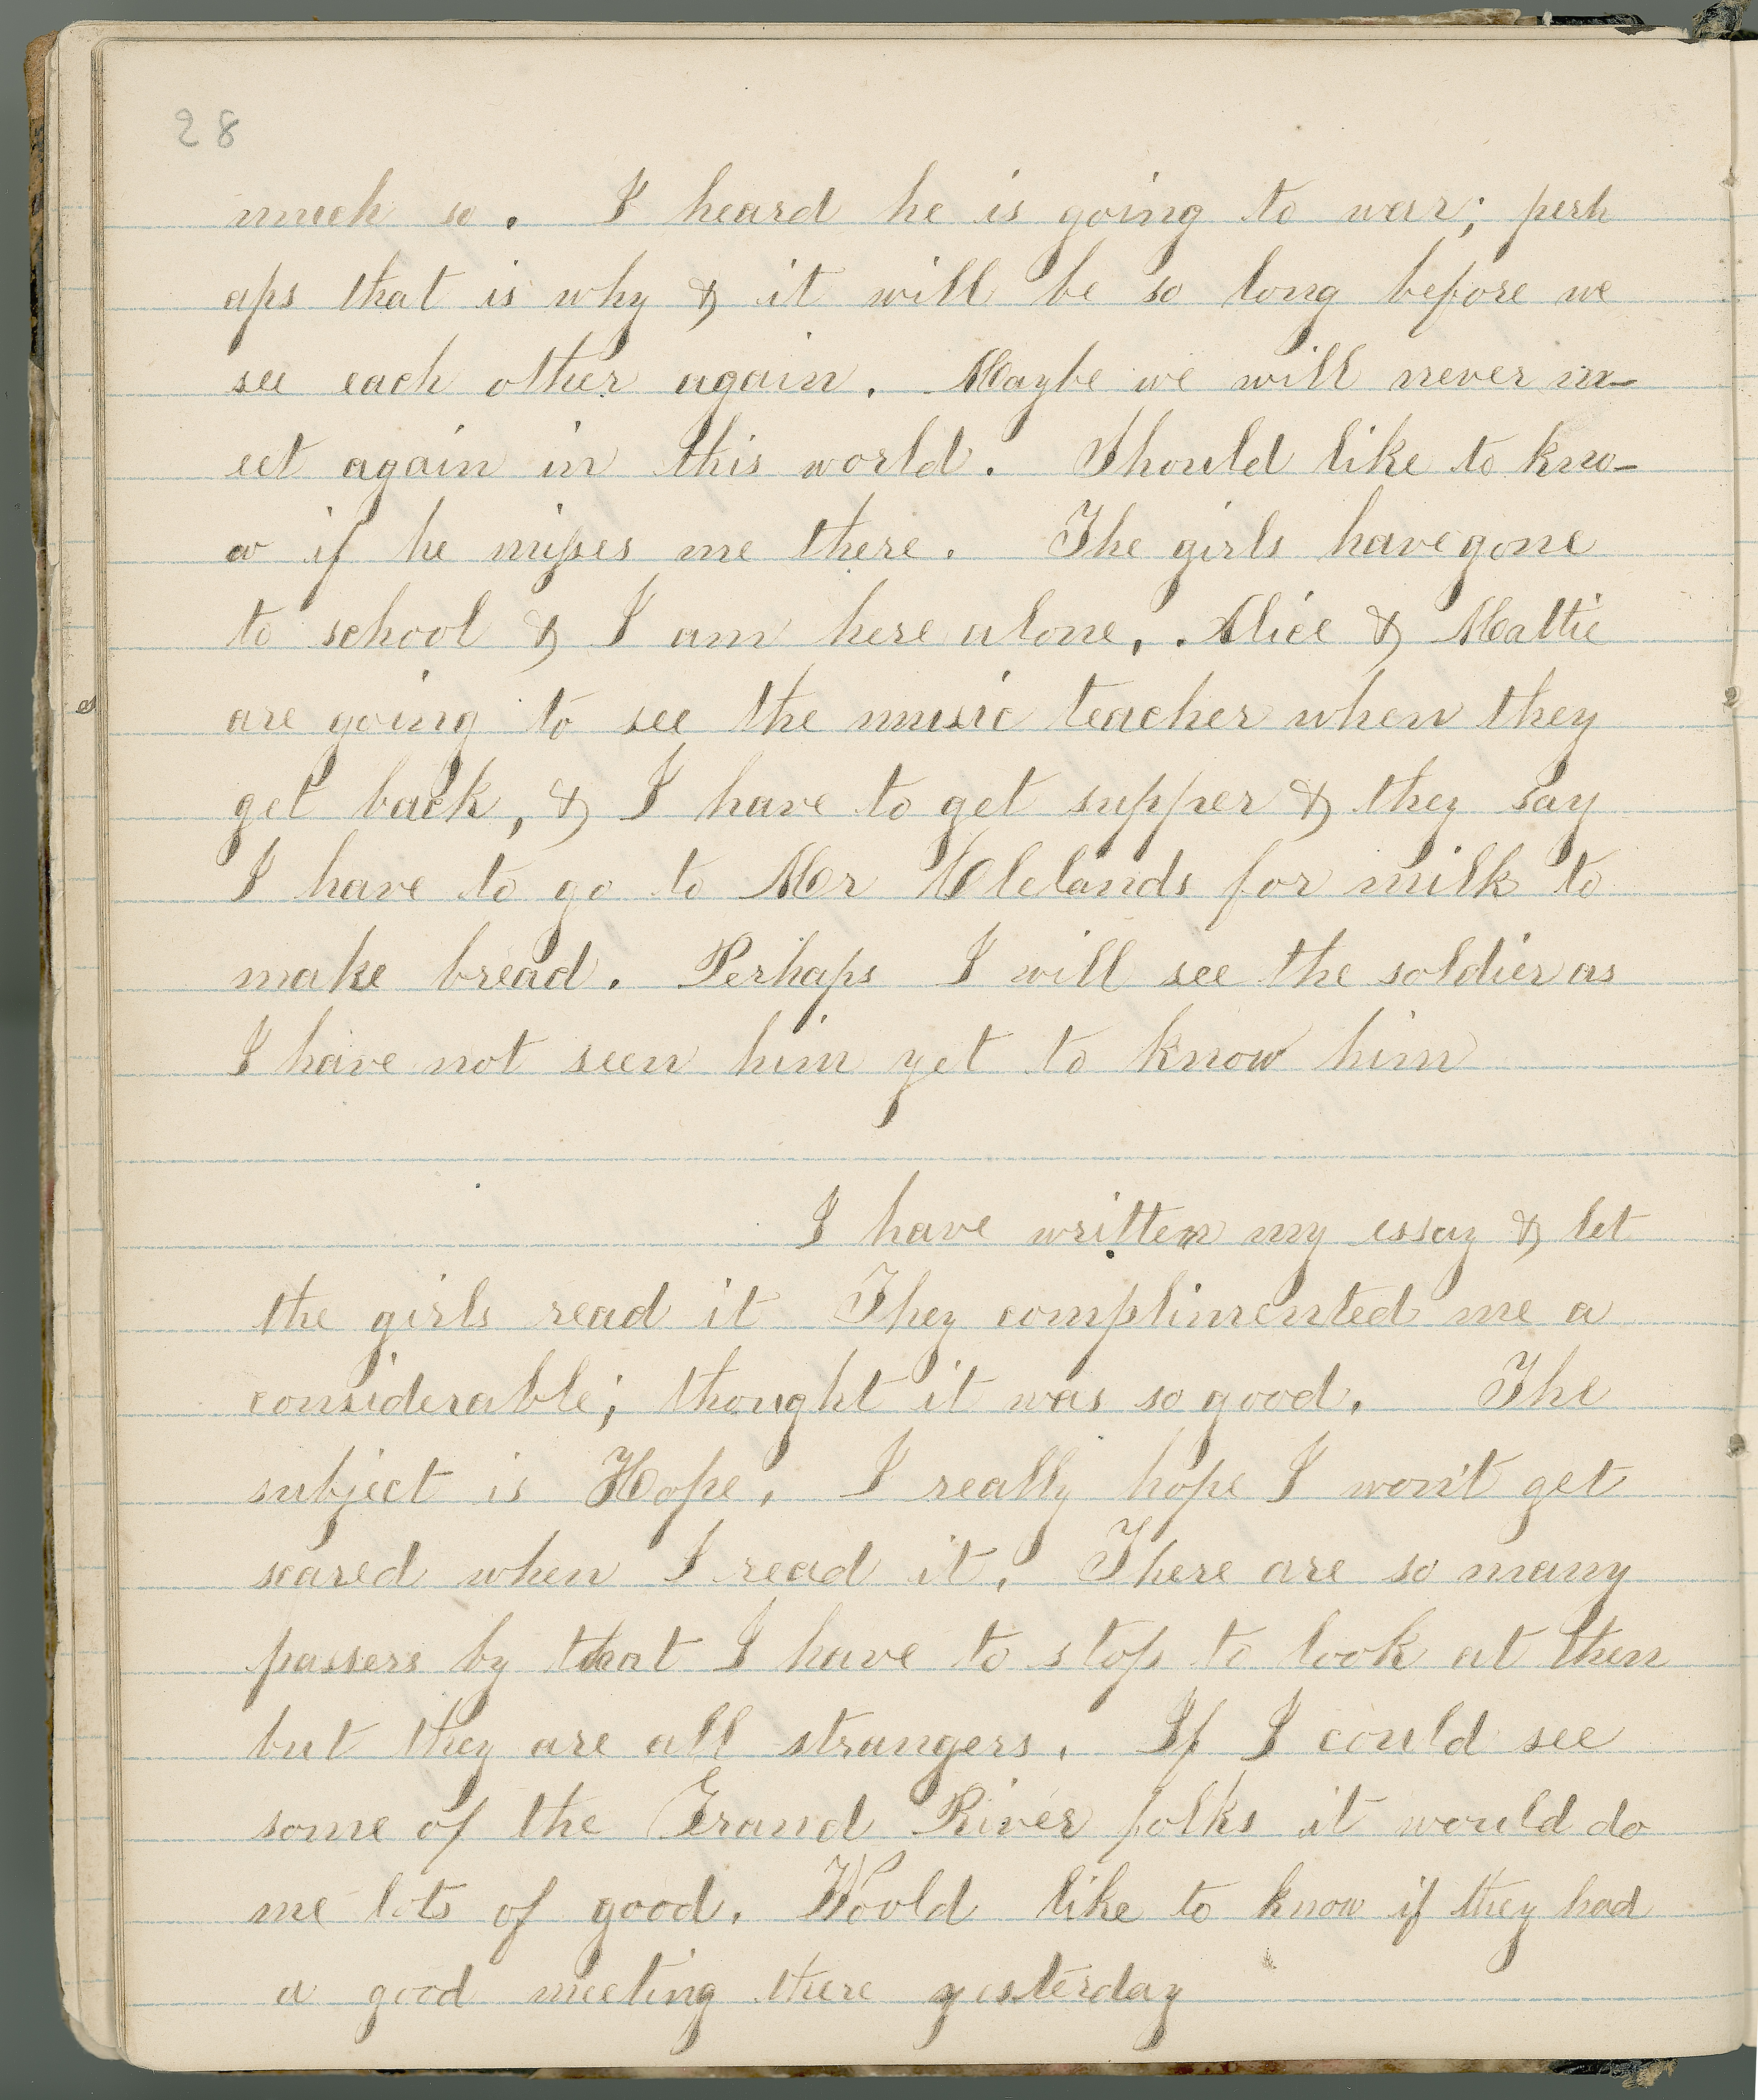 28
much so. I heard he is going to war; perh
aps that is why & it will be so long before we
see each other again. Maybe we will never m-
eet again in this world. Should like to kno-
w if he misses me there. The girls have gone
to school & I am here alone, . Alice & Mattie
are going to see the music teacher when they
get back, & I have to get supper & they say
I have to go to Mr Clelands for milk to
make bread. Perhaps I will see the soldier as
I have not seen him yet to know him
I have written my essay & let
the girls read it They complimented me a
considerable; thought it was so good. The
subject is Hope. I really hope I won't get
scared when I read it. There are so many
passers by that I have to stop to look at them
but they are all strangers. If I could see
some of the Grand River folks it would do
me lots of good. Would like to know if they had
a good meeting there yesterday